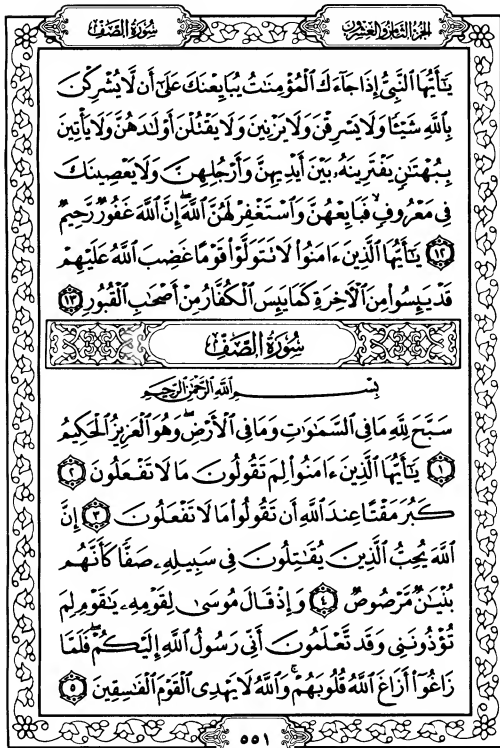 الجزء الثامن والعشرون
سورة الصف
يَٰٓأَيُّهَا ٱلنَّبِىُّ إِذَا جَآءَكَ ٱلْمُؤْمِنَٰتُ يُبَايِعْنَكَ عَلَىٰٓ أَن لَّا يُشْرِكْنَ
بِٱللَّهِ شَيْـًٔا وَلَا يَسْرِقْنَ وَلَا يَزْنِينَ وَلَا يَقْتُلْنَ أَوْلَٰدَهُنَّ وَلَا يَأْتِينَ
بِبُهْتَٰنٍ يَفْتَرِينَهُۥ بَيْنَ أَيْدِيهِنَّ وَأَرْجُلِهِنَّ وَلَا يَعْصِينَكَ
فِى مَعْرُوفٍ ۙ فَبَايِعْهُنَّ وَٱسْتَغْفِرْ لَهُنَّ ٱللَّهَ ۖ إِنَّ ٱللَّهَ غَفُورٌ رَّحِيمٌ
١٢ يَٰٓأَيُّهَا ٱلَّذِينَ ءَامَنُوا۟ لَا تَتَوَلَّوْا۟ قَوْمًا غَضِبَ ٱللَّهُ عَلَيْهِمْ
قَدْ يَئِسُوا۟ مِنَ ٱلْـَٔاخِرَةِ كَمَا يَئِسَ ٱلْكُفَّارُ مِنْ أَصْحَٰبِ ٱلْقُبُورِ ١٣
سُورَةُ الصَّفِّ
بِسْمِ ٱللَّهِ ٱلرَّحْمَٰنِ ٱلرَّحِيمِ
سَبَّحَ لِلَّهِ مَا فِى ٱلسَّمَٰوَٰتِ وَمَا فِى ٱلْأَرْضِ ۖ وَهُوَ ٱلْعَزِيزُ ٱلْحَكِيمُ
١ يَٰٓأَيُّهَا ٱلَّذِينَ ءَامَنُوا۟ لِمَ تَقُولُونَ مَا لَا تَفْعَلُونَ ٢
كَبُرَ مَقْتًا عِندَ ٱللَّهِ أَن تَقُولُوا۟ مَا لَا تَفْعَلُونَ ٣ إِنَّ
ٱللَّهَ يُحِبُّ ٱلَّذِينَ يُقَٰتِلُونَ فِى سَبِيلِهِۦ صَفًّا كَأَنَّهُم
بُنْيَٰنٌ مَّرْصُوصٌ ٤ وَإِذْ قَالَ مُوسَىٰ لِقَوْمِهِۦ يَٰقَوْمِ لِمَ
تُؤْذُونَنِى وَقَد تَّعْلَمُونَ أَنِّى رَسُولُ ٱللَّهِ إِلَيْكُمْ ۖ فَلَمَّا
زَاغُوٓا۟ أَزَاغَ ٱللَّهُ قُلُوبَهُمْ ۚ وَٱللَّهُ لَا يَهْدِى ٱلْقَوْمَ ٱلْفَٰسِقِينَ ٥
٥٥١